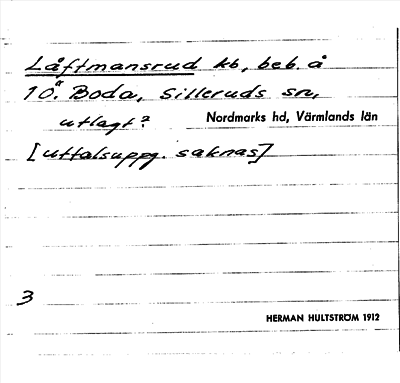 Låftmansrud kb, beb. å
1 Ö. Boda, Silleruds sn,
utlagt?
Nordmarks hd, Värmlands län
[uttalsuppg. saknas]
3
HERMAN HULTSTRÖM 1912